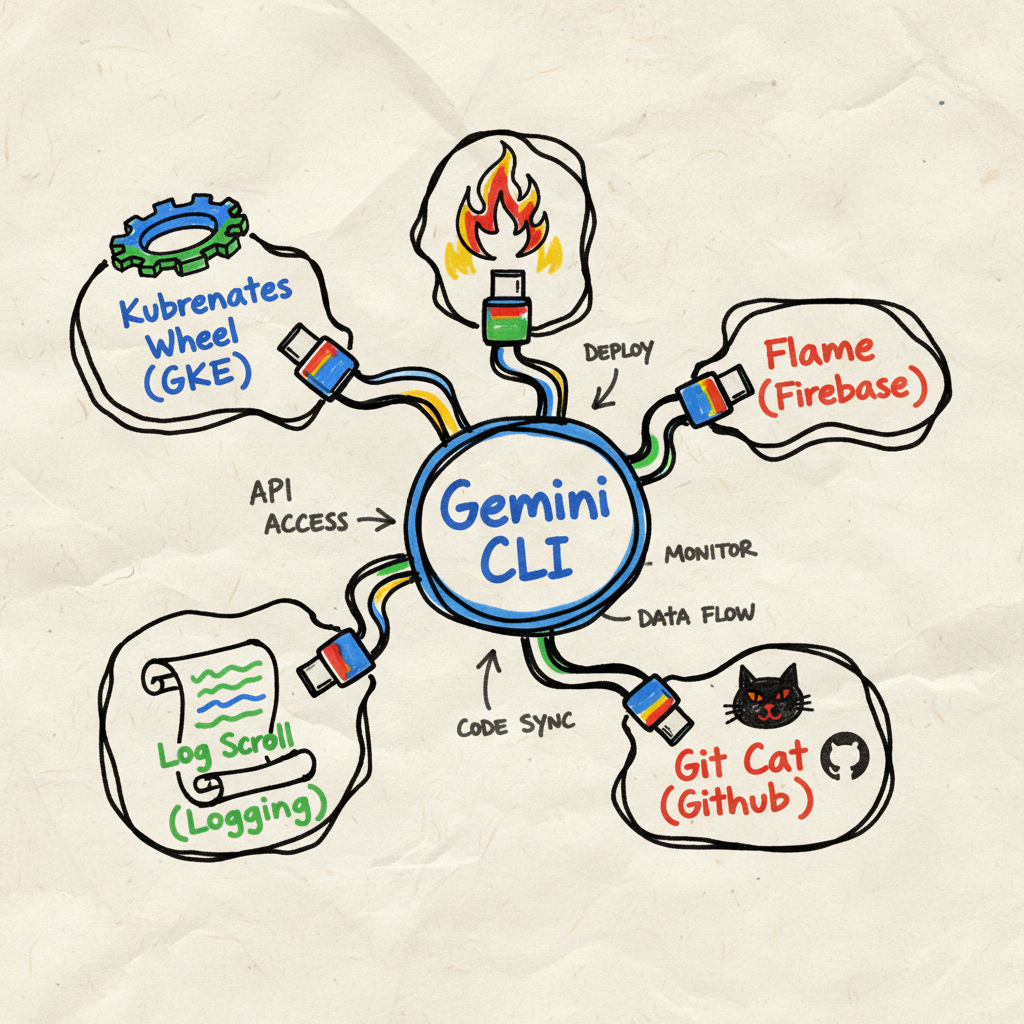 Kubrenates
Wheel
(GKE)
DEPLOY
Flame
(Firebase)
API
ACCESS
Gemini
CLI
MONITOR
DATA FLOW
CODE SYNC
Log Scroll
(Logging)
Git Cat
(Github)